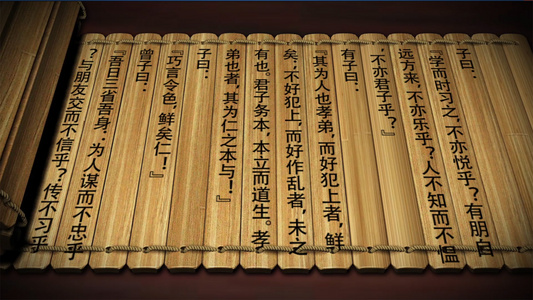 子曰：
『学而时习之,不亦悦乎？有朋自
远方来,不亦乐乎？人不知而不愠
,不亦君子乎？』
有子曰：
『其为人也孝弟,而好犯上者,鲜
矣;不好犯上,而好作乱者,未之
有也。君子务本,本立而道生。孝
弟也者,其为仁之本与！』
子曰：
『巧言令色,鲜矣仁！』
曾子曰：
『吾日三省吾身：为人谋而不忠乎
？与朋友交而不信乎？传不习乎